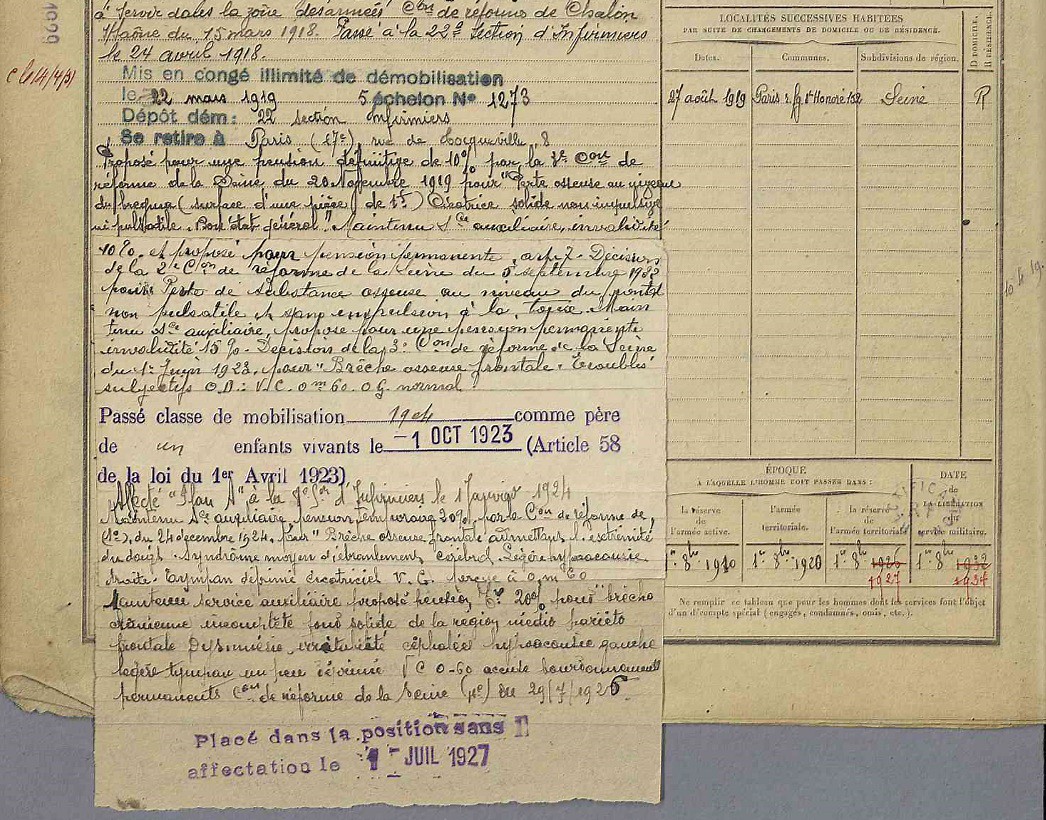 à servir dans la zône des armées Con de réforme de Chalon
s/Saône du 15 mars 1918. Passé à la 22e Section d'Infirmiers
le 24 avril 1918.
Mis en congé illimité de démobilisation
le 22 mars 1919 5 échelon No 1273
Dépôt dém: 22 section Infirmiers
Se retire à Paris (17e) rue de Tocqueville, 8
Proposé pour une pension définitive de 10% par la 3e Con de
réforme de la Seine du 20 Novembre 1919 pour "Perte osseuse au niveau
du bregma (surface d'une pièce de 1f) Cicatrice solide non impulsive
ni pulsatile. Bon état général." Maintenu Sce auxiliaire, invalidité
10%. et proposé pour pension permanente, art. 7. Décision
de la 2e Con de réforme de la Seine du 5 septembre 1922
pour: Perte de substance osseuse au niveau du frontal
non pulsatile et sans impulsion à la toux. Main
tenu Sce auxiliaire, proposé pour une pension permanente
invalidité 15%. Décision de la 3e Con de réforme de la Seine
du 1er Juin 1923, pour "Brêche osseuse frontale. Troubles
subjectifs O.D.: V.C. 0m60. O.G. normal.
Passé classe de mobilisation 1904 comme père
de un enfants vivants le -1 OCT 1923 (Article 58
de la loi du 1er Avril 1923)
Affecté "Plan A" à la Son d'Infirmiers le 1 Janvier 1924
Maintenu Sce auxiliaire, pension temporaire 20%, par la Con de réforme de
du 24 décembre 1924, pour "Brêche osseuse frontale admettant l'extrémité
du doigt. Syndrôme moyen d'ébranlement cérébral. Légère hypoacousie
droite. Tympan déprimé cicatriciel V.C. perçue à 0,m60
Maintenu service auxiliaire proposé pension 20% pour brêche
crânienne incomplète fond solide de la région médio pariéto
frontale Dysmnésie, irritabilité céphalées hypoacousie gauche
légère tympan un peu déprimé V C 0-60 accuse bourdonnements
permanents Con de réforme de la Seine du 29/7/1926.
Placé dans la position sans
affectation le 1 - JUIL 1927
LOCALITÉS SUCCESSIVES HABITÉES
PAR SUITE DE CHANGEMENTS DE DOMICILE OU DE RÉSIDENCE.
Dates. Communes. Subdivisions de région. D DOMICILE. R RÉSIDENCE.
27 août 1919 Paris r. fg St Honoré 152 Seine R
ÉPOQUE
À LAQUELLE L'HOMME DOIT PASSER DANS :
la réserve de l'armée active. l'armée territoriale. la réserve de l'armée territoriale
DATE de LA LIBÉRATION du service militaire.
1er 8bre 1910 1er 8bre 1920 1er 8bre 1926 1er 8bre 1932
1927 1934
Ne remplir ce tableau que pour les hommes dont les services font l'objet
d'un compte spécial (engagés, condamnés, omis, etc.)